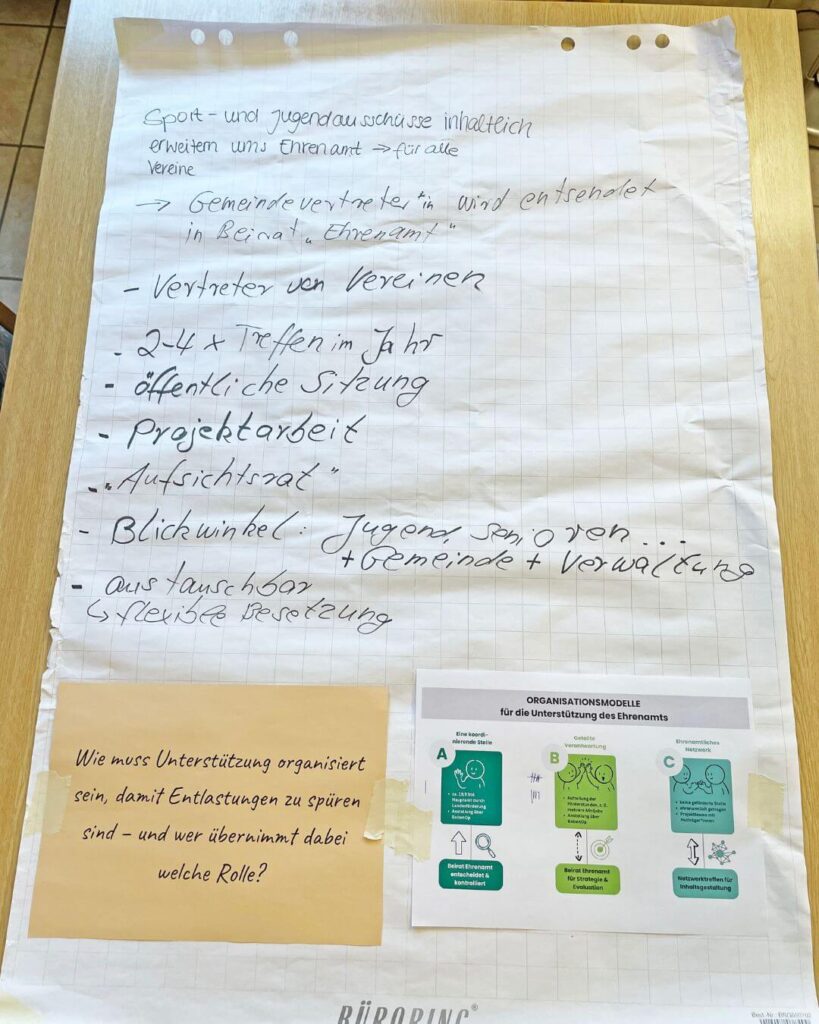 Sport- und Jugendausschüsse inhaltlich
erweitern ums Ehrenamt → für alle
Vereine
→ Gemeindevertreter*in wird entsendet
in Beirat „Ehrenamt"
- Vertreter von Vereinen
- 2-4 x Treffen im Jahr
- öffentliche Sitzung
- Projektarbeit
- „Aufsichtsrat"
- Blickwinkel: Jugend, Senioren...
+ Gemeinde + Verwaltung
- austauschbar
↳ flexible Besetzung
Wie muss Unterstützung organisiert
sein, damit Entlastungen zu spüren
sind – und wer übernimmt dabei
welche Rolle?
ORGANISATIONSMODELLE
für die Unterstützung des Ehrenamts
Eine koordi-
nierende Stelle
A
Hauptamt durch
Landesförderung
Anstellung über
Beirat Ehrenamt
entscheidet &
kontrolliert
Geteilte
Verantwortung
B
Aufteilung der
Anstellung über
Beirat Ehrenamt
für Strategie &
Evaluation
Ehrenamtliches
Netzwerk
C
keine geförderte Stelle
ehrenamtlich getragen
Netzwerktreffen für
Inhaltsgestaltung
BÜRORING®